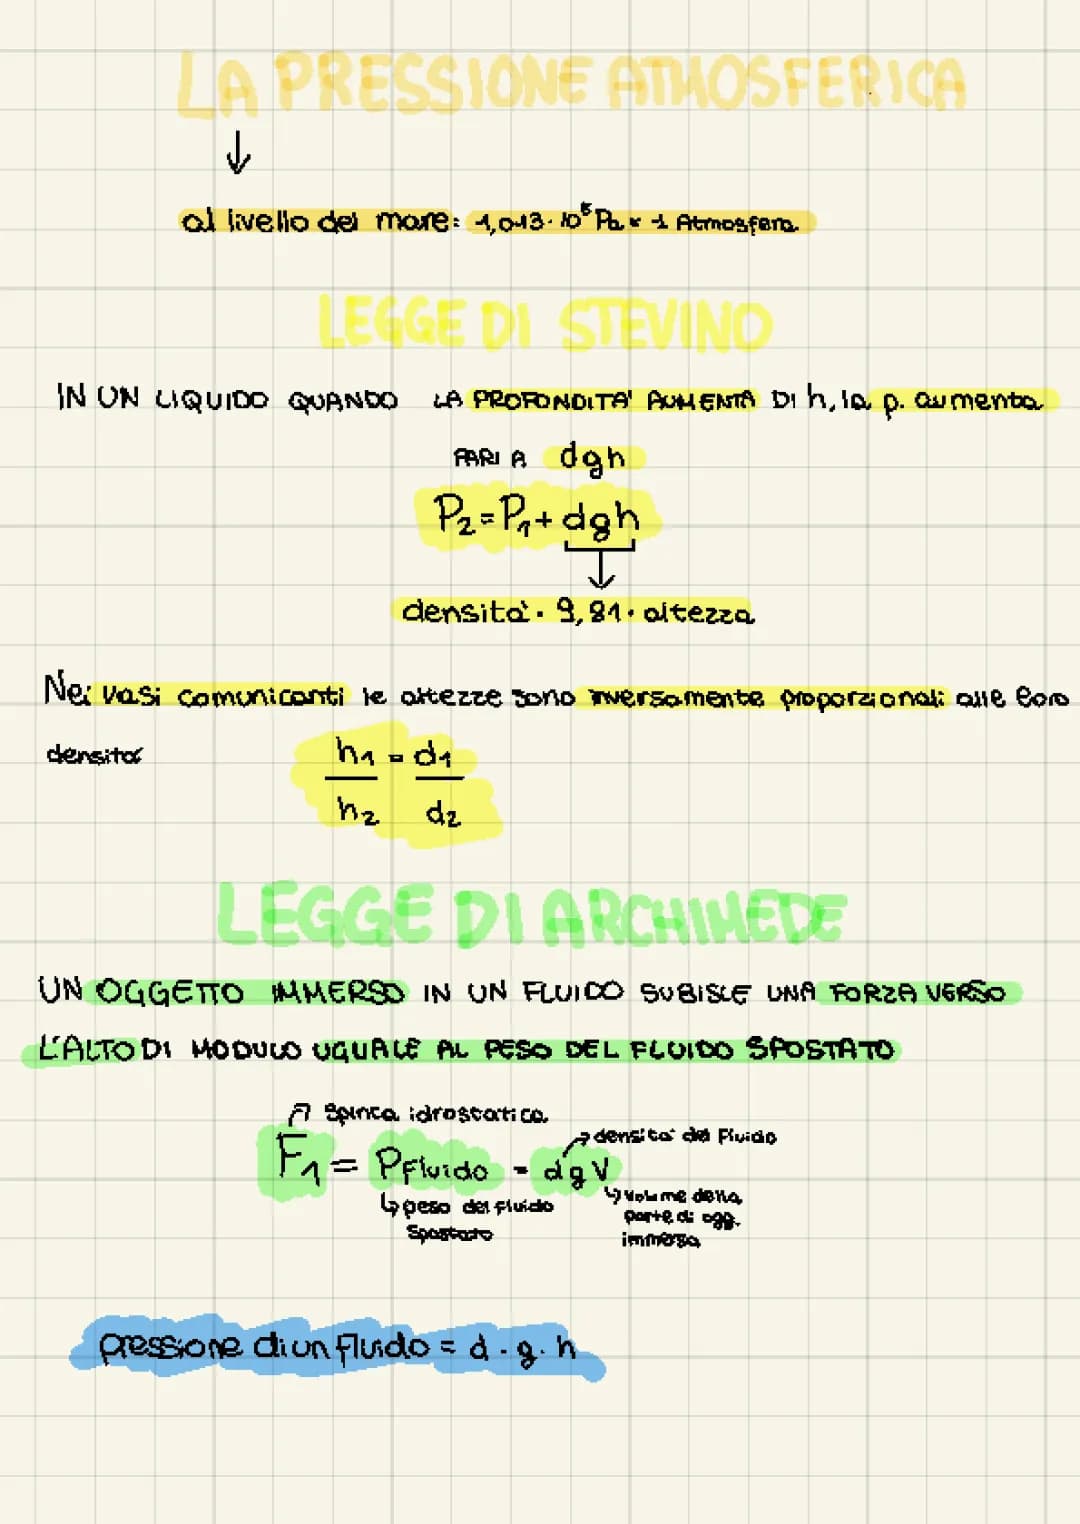 LA PRESSIONE ATMOSFERICA
↓
al livello del mare: 1,013·10⁵ Pa = 1 Atmosfera
LEGGE DI STEVINO
IN UN LIQUIDO QUANDO LA PROFONDITA' AUMENTA DI h, la p. aumenta
PARI A dgh
P₂=P₁+dgh
↓
densità·9,81·altezza
Nei vasi comunicanti le altezze sono inversamente proporzionali alle loro
densità
h₁ = d₁
h₂ d₂
LEGGE DI ARCHIMEDE
UN OGGETTO IMMERSO IN UN FLUIDO SUBISCE UNA FORZA VERSO
L'ALTO DI MODULO UGUALE AL PESO DEL FLUIDO SPOSTATO
spinta idrostatica
densita' del Fluido
F₁ = PFluido = dgV
peso del fluido
spostato
volume della
parte di ogg.
immersa
pressione di un fluido = d·g·h